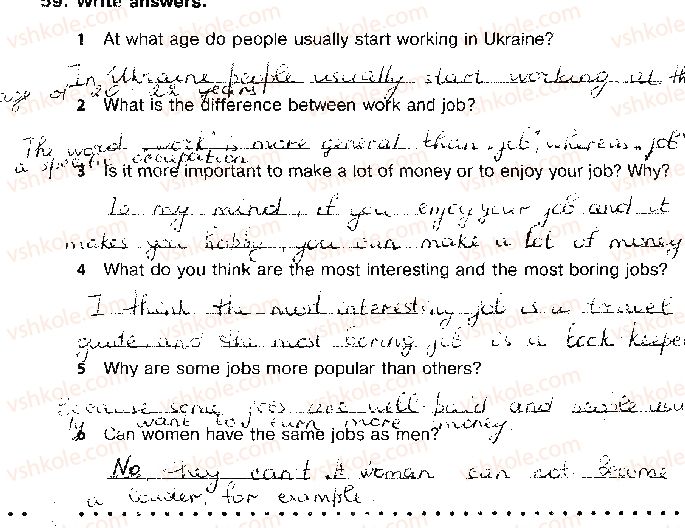 59. Write answers.
1 At what age do people usually start working in Ukraine?
In Ukraine people usually start working at th
age of 20-22 years
2 What is the difference between work and job?
The word „work" is more general than „job", whereas „job"
a specific occupation
3 Is it more important to make a lot of money or to enjoy your job? Why?
To my mind, if you enjoy your job and it
makes you happy, you can make a lot of money
4 What do you think are the most interesting and the most boring jobs?
I think the most interesting job is a travel
guide and the most boring job is a book keeper
5 Why are some jobs more popular than others?
Because some jobs are well paid and people usu
ly want to earn more money.
6 Can women have the same jobs as men?
No they can't. A woman can not became
a leader, for example.
vshkole.com